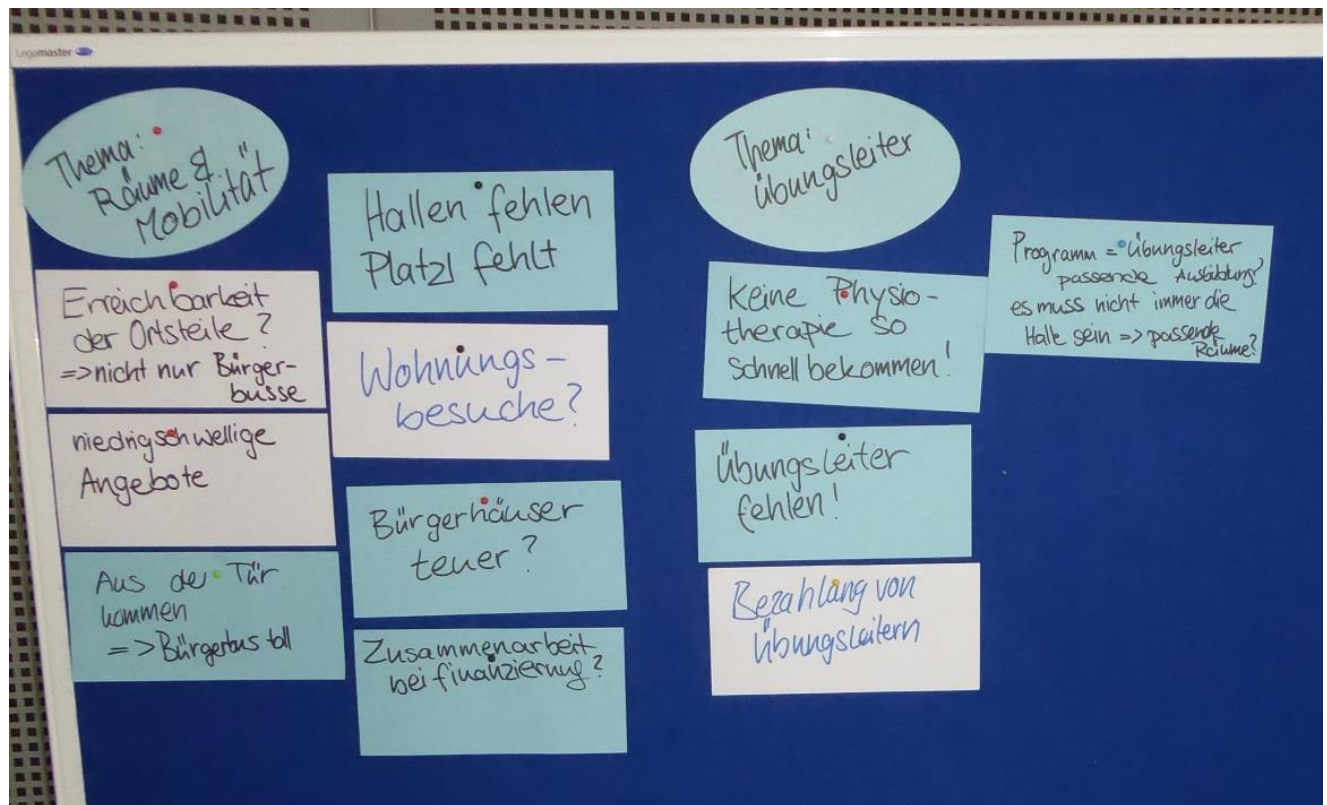 Legamaster
Thema:
Räume &
Mobilität
Erreichbarkeit
der Ortsteile?
=> nicht nur Bürger-
busse
niedrigschwellige
Angebote
Aus der Tür
kommen
=> Bürgerbus toll
Hallen fehlen
Platz fehlt
Wohnungs-
besuche?
Bürgerhäuser
teuer?
Zusammenarbeit
bei finanzierung?
Thema:
Übungsleiter
Keine Physio-
therapie so
schnell bekommen!
Übungsleiter
fehlen!
Bezahlung von
Übungsleitern
Programm = Übungsleiter
passende Ausbildung?
es muss nicht immer die
Halle sein => passende
Räume?